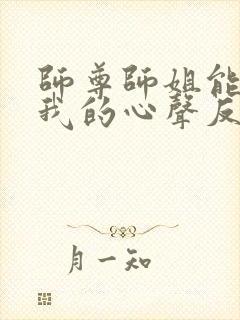 師尊師姐能
我的心聲反
月一知